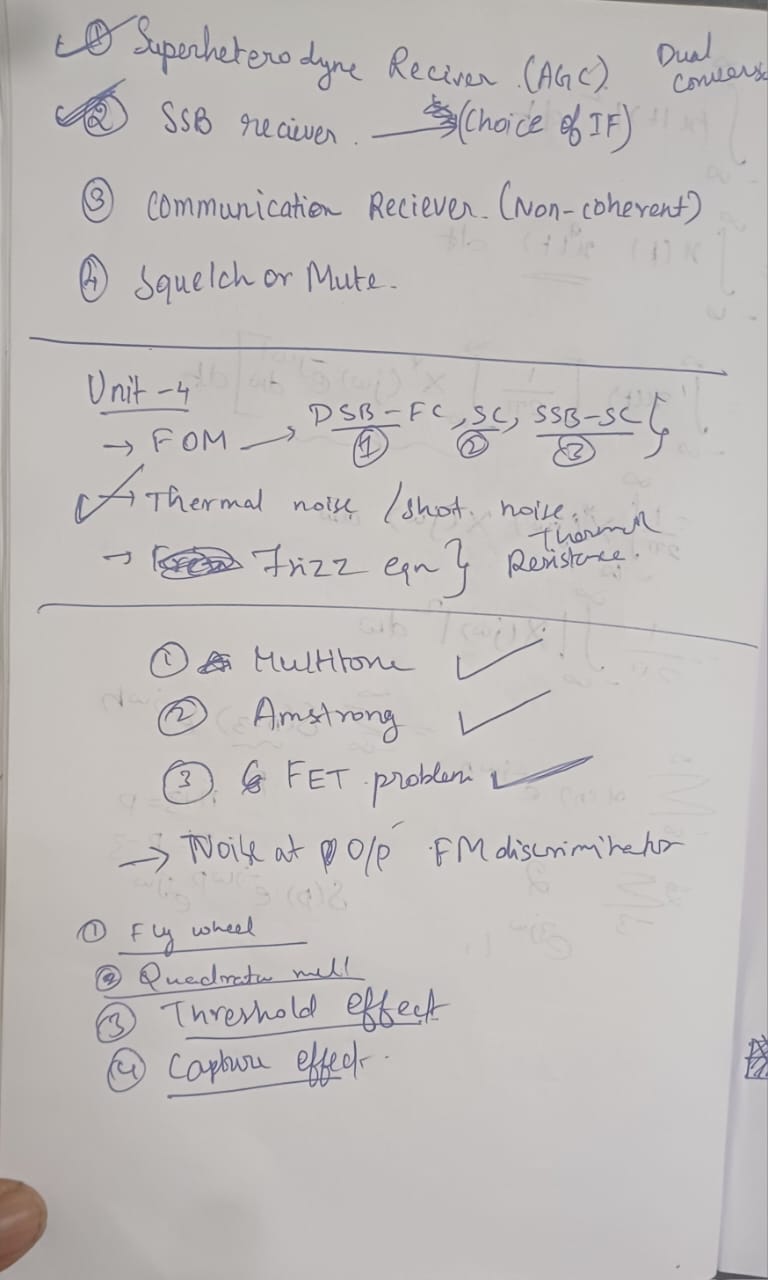 ① Superheterodyne Reciver (AGC) Dual
② SSB reciever. → (Choice of IF)
③ Communication Reciever. (Non-coherent)
④ Squelch or Mute.
Unit-4
→ FOM → DSB-FC, SC, SSB-SC }
① ② ③
→ Thermal noise / shot noise.
→ Frizz eqn } Thermal Resistance.
① Multitone ✓
② Amstrong ✓
③ FET problem ✓
→ Noise at O/P FM discriminator
① Fly wheel
② Quadratu null
③ Threshold effect
④ Capture effect.